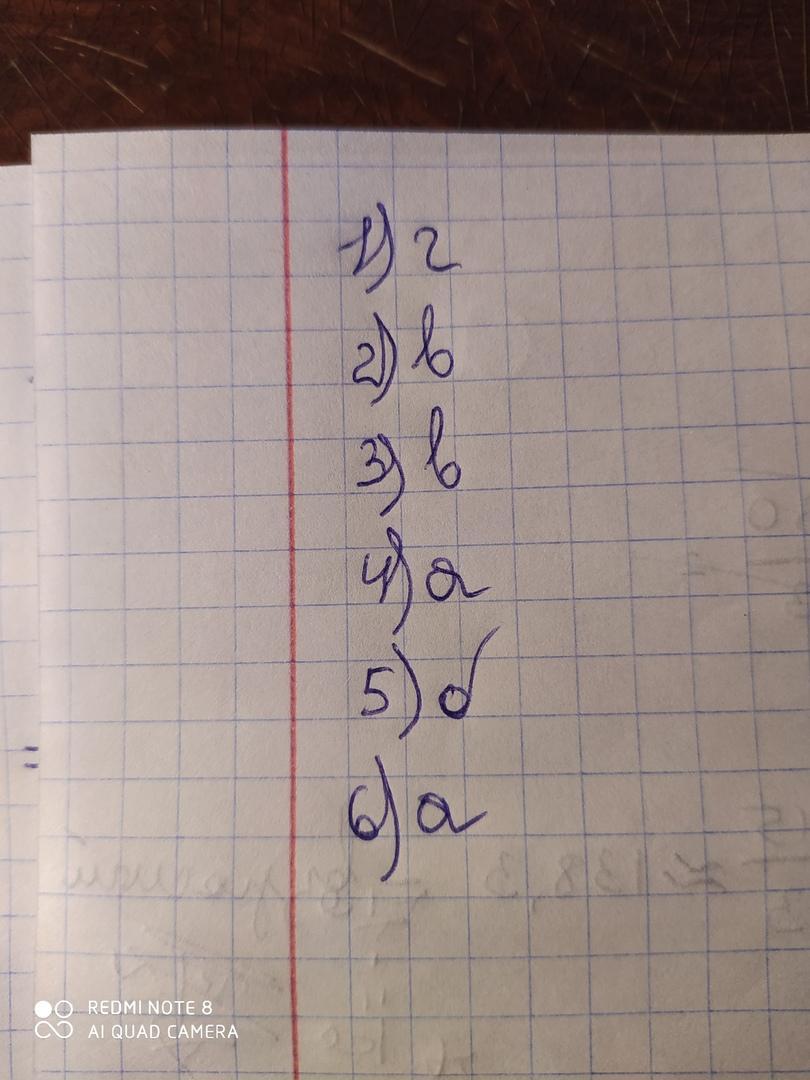 1) г
2) в
3) в
4) а
5) б
6) а
REDMI NOTE 8
AI QUAD CAMERA